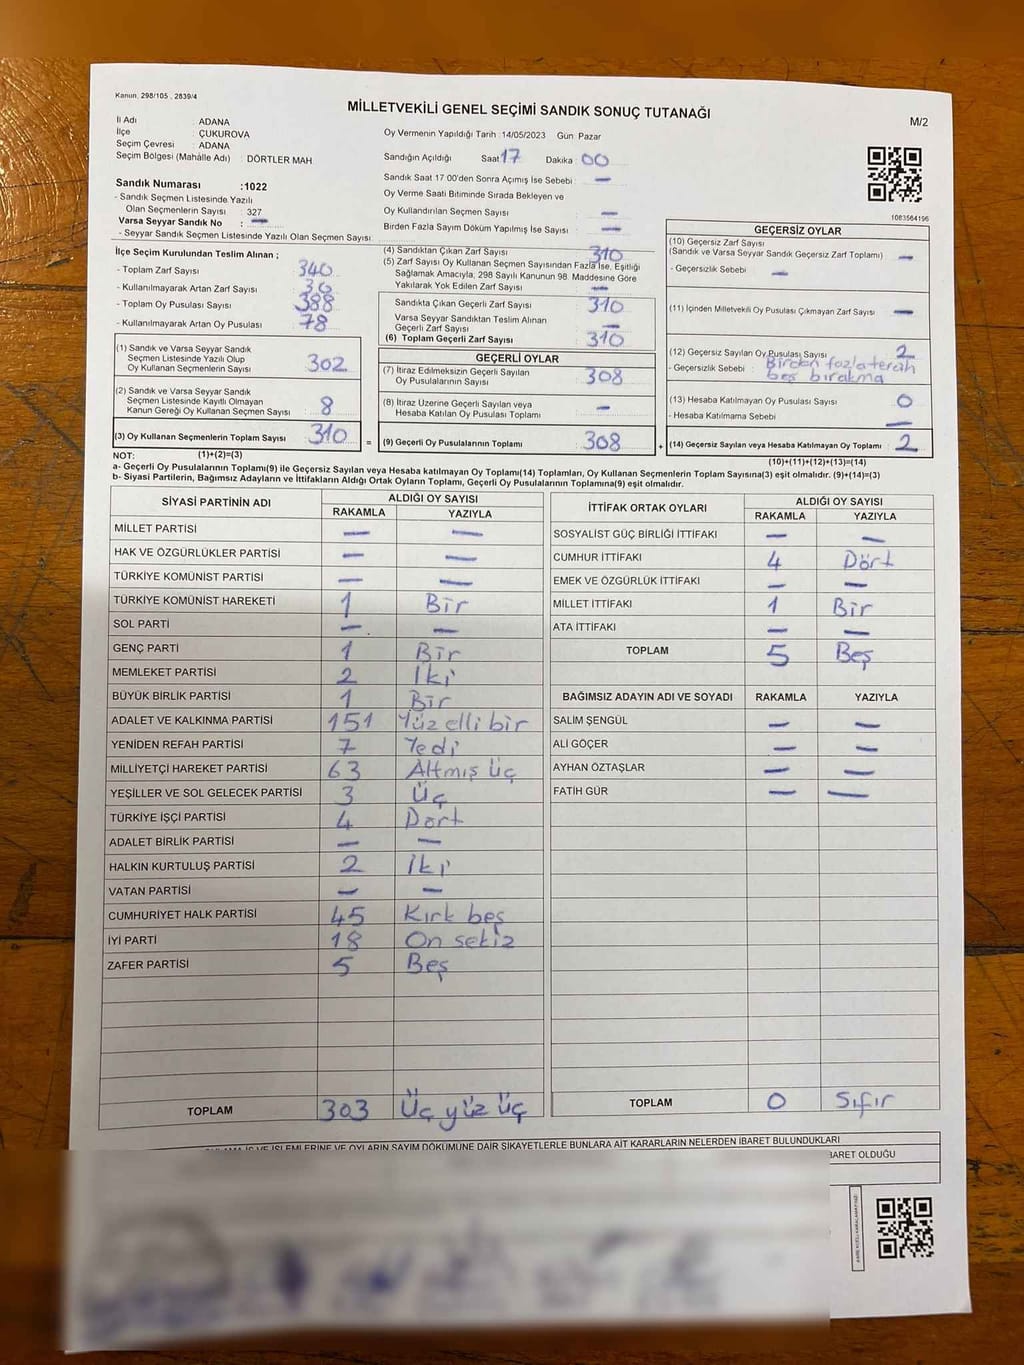 Kanun, 298/105 , 2839/4
MİLLETVEKİLİ GENEL SEÇİMİ SANDIK SONUÇ TUTANAĞI
M/2
İl Adı : ADANA
İlçe : ÇUKUROVA
Seçim Çevresi : ADANA
Seçim Bölgesi (Mahalle Adı) : DÖRTLER MAH
Oy Vermenin Yapıldığı Tarih :14/05/2023 Gün Pazar
Sandığın Açıldığı Saat 17 Dakika 00
Sandık Saat 17 00'den Sonra Açımış İse Sebebi : —
Oy Verme Saati Bitiminde Sırada Bekleyen ve
Oy Kullandırılan Seçmen Sayısı : —
Birden Fazla Sayım Döküm Yapılmış İse Sayısı : —
Sandık Numarası :1022
- Sandık Seçmen Listesinde Yazılı
Olan Seçmenlerin Sayısı : 327
Varsa Seyyar Sandık No : —
- Seyyar Sandık Seçmen Listesinde Yazılı Olan Seçmen Sayısı:
1083564196
İlçe Seçim Kurulundan Teslim Alınan ;
- Toplam Zarf Sayısı : 340
- Kullanılmayarak Artan Zarf Sayısı : 30
- Toplam Oy Pusulası Sayısı : 388
- Kullanılmayarak Artan Oy Pusulası : 78
(1) Sandık ve Varsa Seyyar Sandık
Seçmen Listesinde Yazılı Olup
Oy Kullanan Seçmenlerin Sayısı : 302
(2) Sandık ve Varsa Seyyar Sandık
Seçmen Listesinde Kayıtlı Olmayan
Kanun Gereği Oy Kullanan Seçmen Sayısı : 8
(3) Oy Kullanan Seçmenlerin Toplam Sayısı : 310
(4) Sandıktan Çıkan Zarf Sayısı : 310
(5) Zarf Sayısı Oy Kullanan Seçmen Sayısından Fazla İse, Eşitliği
Sağlamak Amacıyla, 298 Sayılı Kanunun 98. Maddesine Göre
Yakılarak Yok Edilen Zarf Sayısı : —
Sandıkta Çıkan Geçerli Zarf Sayısı : 310
Varsa Seyyar Sandıktan Teslim Alınan
Geçerli Zarf Sayısı : —
(6) Toplam Geçerli Zarf Sayısı : 310
GEÇERLİ OYLAR
(7) İtiraz Edilmeksizin Geçerli Sayılan
Oy Pusulalarının Sayısı : 308
(8) İtiraz Üzerine Geçerli Sayılan veya
Hesaba Katılan Oy Pusulası Toplamı : —
= (9) Geçerli Oy Pusulalarının Toplamı : 308
GEÇERSİZ OYLAR
(10) Geçersiz Zarf Sayısı
(Sandık ve Varsa Seyyar Sandık Geçersiz Zarf Toplamı) : —
- Geçersizlik Sebebi : —
(11) İçinden Milletvekili Oy Pusulası Çıkmayan Zarf Sayısı : —
(12) Geçersiz Sayılan Oy Pusulası Sayısı : 2
- Geçersizlik Sebebi : Birden fazla tercih
boş bırakma
(13) Hesaba Katılmayan Oy Pusulası Sayısı : 0
- Hesaba Katılmama Sebebi : —
+ (14) Geçersiz Sayılan veya Hesaba Katılmayan Oy Toplamı : 2
NOT: (1)+(2)=(3)
(10)+(11)+(12)+(13)=(14)
a- Geçerli Oy Pusulalarının Toplamı(9) ile Geçersiz Sayılan veya Hesaba katılmayan Oy Toplamı(14) Toplamları, Oy Kullanan Seçmenlerin Toplam Sayısına(3) eşit olmalıdır. (9)+(14)=(3)
b- Siyasi Partilerin, Bağımsız Adayların ve İttifakların Aldığı Ortak Oyların Toplamı, Geçerli Oy Pusulalarının Toplamına(9) eşit olmalıdır.
SİYASİ PARTİNİN ADI ALDIĞI OY SAYISI
RAKAMLA YAZIYLA
MİLLET PARTİSİ — —
HAK VE ÖZGÜRLÜKLER PARTİSİ — —
TÜRKİYE KOMÜNİST PARTİSİ — —
TÜRKİYE KOMÜNİST HAREKETİ 1 Bir
SOL PARTİ — —
GENÇ PARTİ 1 Bir
MEMLEKET PARTİSİ 2 İki
BÜYÜK BİRLİK PARTİSİ 1 Bir
ADALET VE KALKINMA PARTİSİ 151 Yüz elli bir
YENİDEN REFAH PARTİSİ 7 Yedi
MİLLİYETÇİ HAREKET PARTİSİ 63 Altmış üç
YEŞİLLER VE SOL GELECEK PARTİSİ 3 Üç
TÜRKİYE İŞÇİ PARTİSİ 4 Dört
ADALET BİRLİK PARTİSİ — —
HALKIN KURTULUŞ PARTİSİ 2 İki
VATAN PARTİSİ — —
CUMHURİYET HALK PARTİSİ 45 Kırk beş
İYİ PARTİ 18 On sekiz
ZAFER PARTİSİ 5 Beş
TOPLAM 303 Üç yüz üç
İTTİFAK ORTAK OYLARI ALDIĞI OY SAYISI
RAKAMLA YAZIYLA
SOSYALİST GÜÇ BİRLİĞİ İTTİFAKI — —
CUMHUR İTTİFAKI 4 Dört
EMEK VE ÖZGÜRLÜK İTTİFAKI — —
MİLLET İTTİFAKI 1 Bir
ATA İTTİFAKI — —
TOPLAM 5 Beş
BAĞIMSIZ ADAYIN ADI VE SOYADI RAKAMLA YAZIYLA
SALİM ŞENGÜL — —
ALİ GÖÇER — —
AYHAN ÖZTAŞLAR — —
FATİH GÜR — —
TOPLAM 0 Sıfır
VE İŞLEMLERİNE VE OYLARIN SAYIM DÖKÜMÜNE DAİR ŞİKAYETLERLE BUNLARA AİT KARARLARIN NELERDEN İBARET BULUNDUKLARI
BARET OLDUĞU